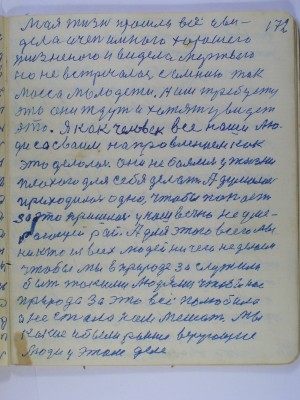 172
Моя жизнь прошла всё я ви-
дела очень много хорошего
жизненого и видела мертвого
но не встречалась с таким так
масса молодежи. А им требуется
это они ждут и хотят увидеть
это. Я как человек все наши лю-
ди со своим направлением как
это делали. Они не боялися у жизни
плохого для себя делать. А думали
приходили одно, чтобы покоем
за это пришол у нас вечно не уми-
рающей рай. А для этого всего мы
никто из всех людей ничего не делали
чтобы мы в природе заслужили
быть такими людями чтобы нас
природа за это всё полюбила
а не стала нам мешать. Мы
какие и были раньше верующие
люди у этом деле